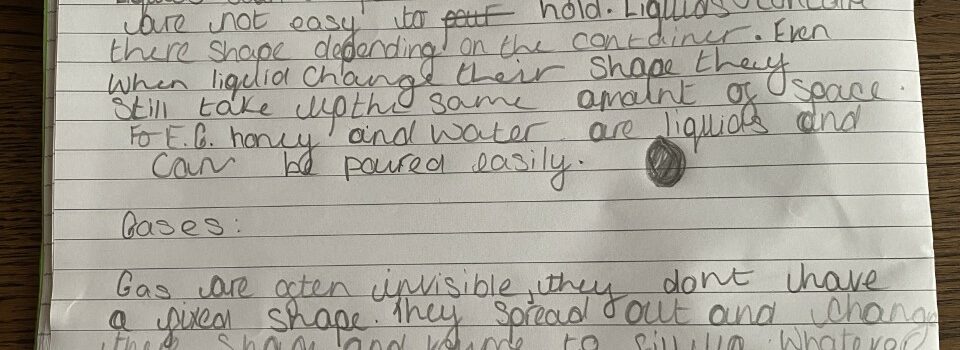 are not easy to hold. Liquids
there shape depending on the container. Even
when liquid change their shape they
still take upthe same amaint of space.
Fo E.G. honey and water are liquids and
can be poured easily.
Gases:
Gas are often invisible, they dont have
a fixed shape. they spread out and change
and volume to fill up whatever